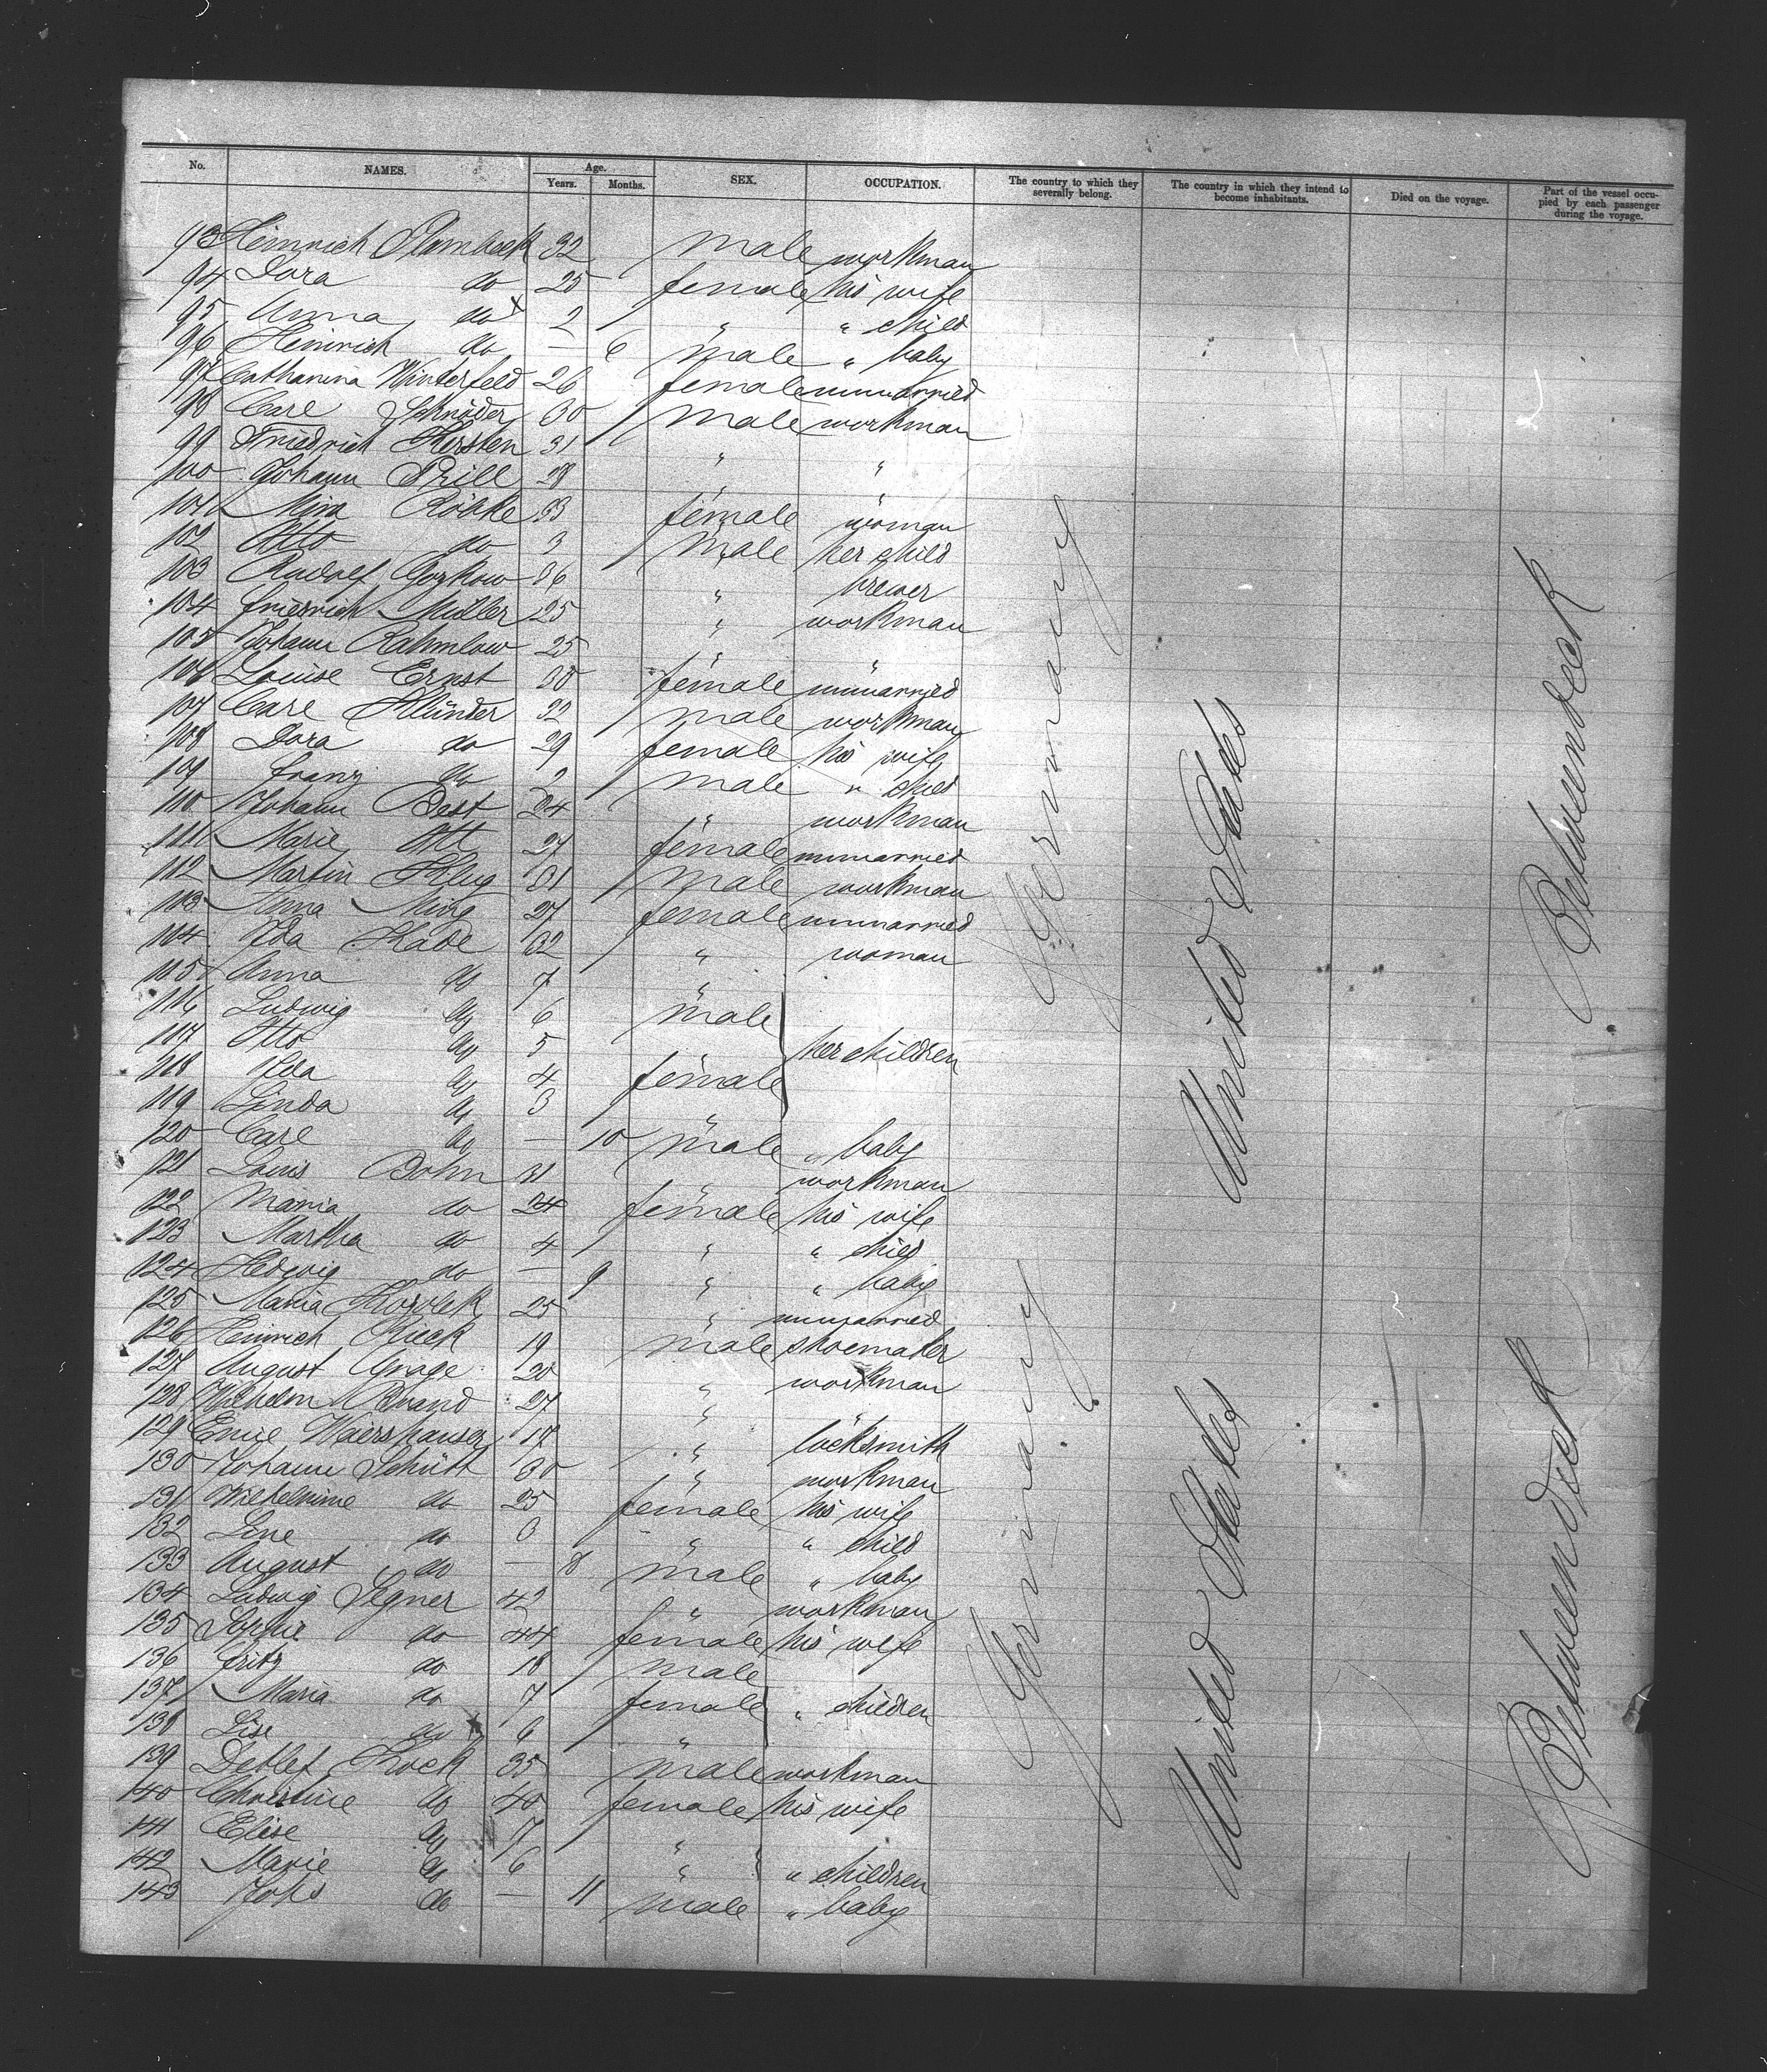 No. NAMES. Age. Years. Months. SEX. OCCUPATION. The country to which they severally belong. The country in which they intend to become inhabitants. Died on the voyage. Part of the vessel occupied by each passenger during the voyage.
93 Heinrich 32 male workman
94 Dora do 25 female his wife
95 Anna do 2 " " child
96 Heinrich do — 6 male " baby
97 Catharina Winterfeld 26 female unmarried
98 Carl Schröder 30 male workman
99 Friedrich Kersten 31 " "
100 Johann Prill 28 " "
101 Mina 33 female woman
102 Otto do 3 male her child
103 Rudolf 36 " brewer
104 Friedrich Müller 25 " workman
105 Johann Rahmlow 25 " "
106 Louise Ernst 30 female unmarried
107 Carl Klünder 32 male workman
108 Dora do 29 female his wife
109 Franz do 2 male " child
110 Johann Bast 24 " workman
111 Marie Ott 27 female unmarried
112 Martin Klug 31 male workman
113 Anna 27 female unmarried
114 Ida Kade 32 " woman
115 Anna do 7 "
116 Ludwig do 6 male
117 Otto do 5 " her children
118 Ida do 4 female
119 Linda do 3 "
120 Carl do — 10 male " baby
121 Louis Bohn 31 " workman
122 Maria do 24 female his wife
123 Martha do 4 " " child
124 Hedwig do — 9 " " baby
125 Maria 25 " unmarried
126 Heinrich Rieck 19 male shoemaker
127 August 20 " workman
128 Wilhelm Brand 27 " "
129 Emil 17 " locksmith
130 Johann Schütt 30 " workman
131 Wilhelmine do 25 female his wife
132 Line do 3 " " child
133 August do — 8 male " baby
134 Ludwig Segner 42 " workman
135 Sophie do 44 female his wife
136 Fritz do 18 male
137 Maria do 7 female " children
138 Lise do 6 "
139 Detlef 35 male workman
140 Christine do 40 female his wife
141 Elise do 7 "
142 Marie do 6 " " children
143 Johs do — 11 male " baby
Germany
United States
Betweendeck
Germany
United States
Betweendeck